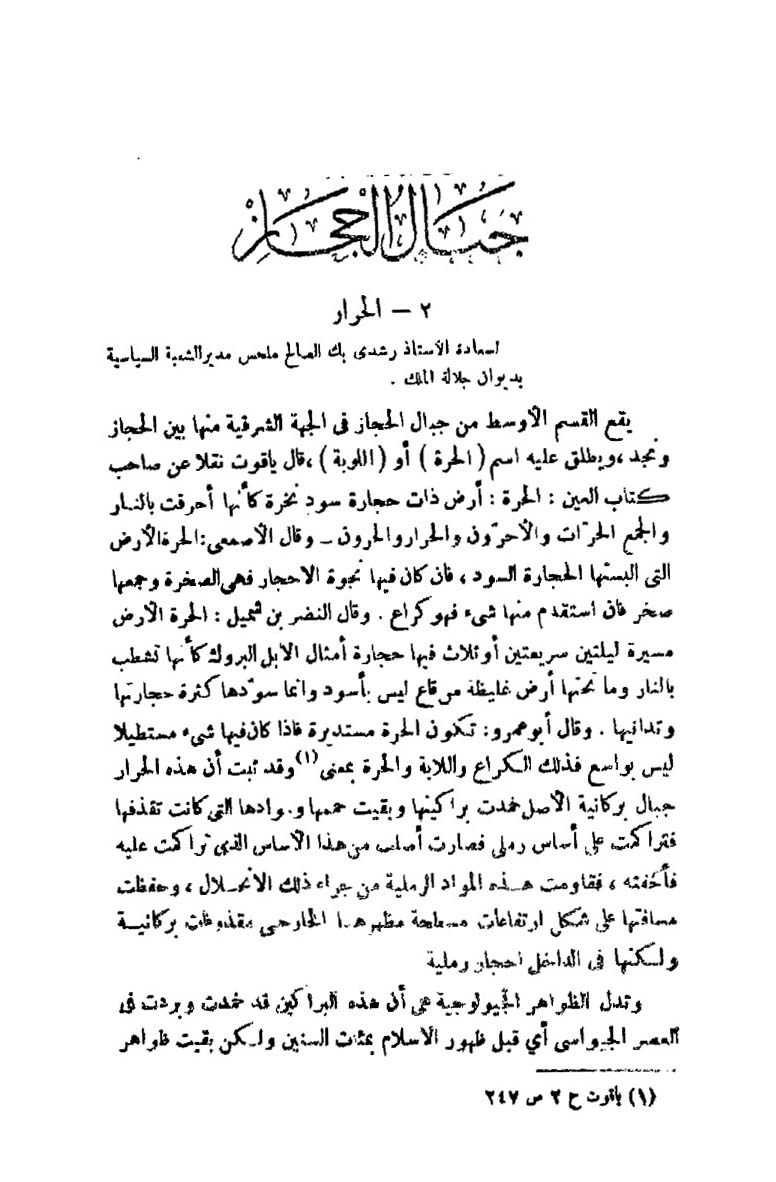 جبال الحجاز
٢ — الحرار
لسعادة الأستاذ رشدى بك الصالح ملحس مدير الشعبة السياسية
بديوان جلالة الملك .
يقع القسم الأوسط من جبال الحجاز فى الجهة الشرقية منها بين الحجاز
ونجد ، ويطلق عليه اسم ( الحرة ) أو ( اللوبة ) ، قال ياقوت نقلا عن صاحب
كتاب العين : الحرة : أرض ذات حجارة سود نخرة كأنها أحرقت بالنار
والجمع الحرّات والأحرّون والحرار والحرون — وقال الأصمعى : الحرة الأرض
التى البستها الحجارة السود ، فان كان فيها نجوة الاحجار فهى الصخرة وجمعها
صخر فان استقدم منها شىء فهو كراع . وقال النضر بن شميل : الحرة الأرض
مسيرة ليلتين سريعتين أو ثلاث فيها حجارة أمثال الابل البروك كأنها تشطب
بالنار وما تحتها أرض غليظة من قاع ليس بأسود وانما سوّدها كثرة حجارتها
وتدانيها . وقال أبو عمرو : تكون الحرة مستديرة فاذا كان فيها شىء مستطيلا
ليس بواسع فذلك الكراع واللابة والحرة بمعنى (١) وقد ثبت أن هذه الحرار
جبال بركانية الأصل خمدت براكينها وبقيت حممها وموادها التى كانت تقذفها
فتراكمت على أساس رملى فصارت أصلب من هذا الأساس الذى تراكمت عليه
فأخفته ، فقاومت هذه المواد الرملية من جراء ذلك الانحلال ، وحفظت
مسافتها على شكل ارتفاعات مسطحة مظهرها الخارجى مقذوفات بركانية
ولكنها فى الداخل احجار رملية
وتدل الظواهر الجيولوجية هى أن هذه البراكين قد خمدت وبردت فى
العصر الجيواسى أي قبل ظهور الاسلام بمئات السنين ولكن بقيت ظواهر
(١) ياقوت ح ٣ ص ٢٤٧